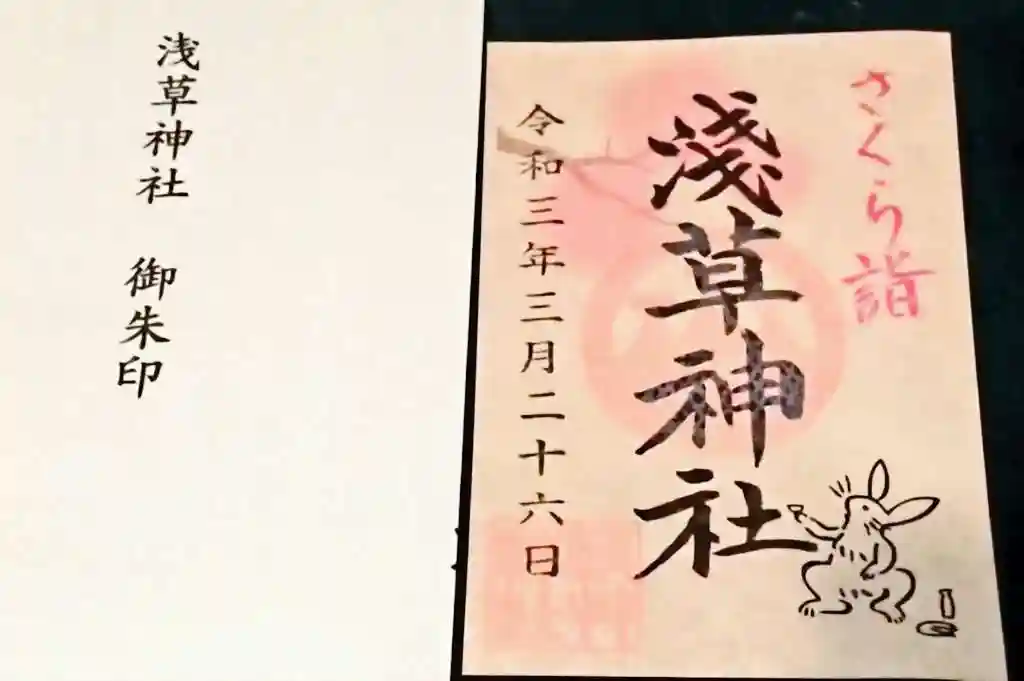 浅草神社 御朱印
さくら詣
淺草神社
令和三年三月二十六日